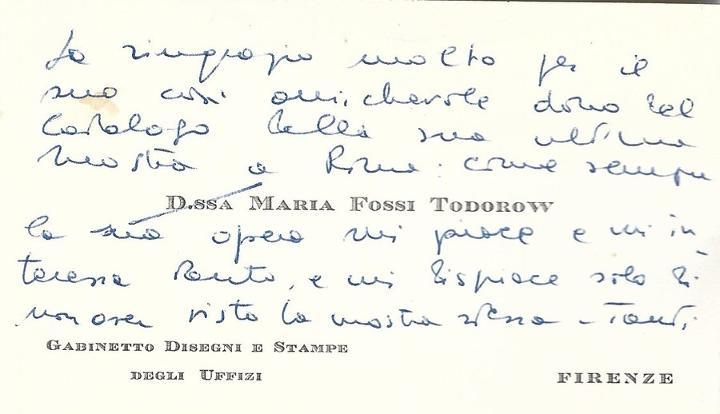 La ringrazio molto per il
suo così amichevole dono del
Catalogo della sua ultima
mostra a Roma: come sempre
D.ssa Maria Fossi Todorow
la sua opera mi piace e mi in
teressa tanto, e mi dispiace solo di
non aver visto la mostra stessa - Tanti
Gabinetto Disegni e Stampe
degli Uffizi
FIRENZE